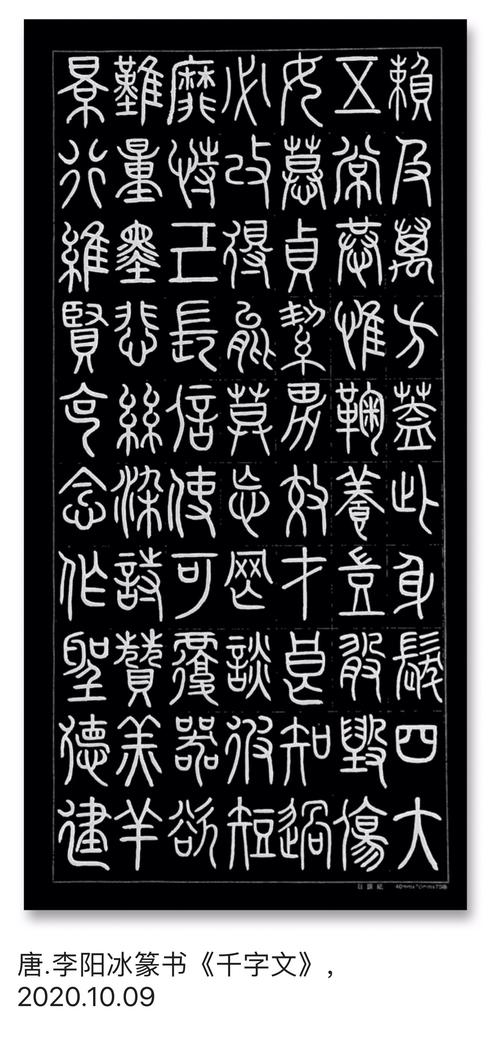 賴及萬方蓋此身髮四大
五常恭惟鞠養豈敢毀傷
女慕貞絜男效才良知過
必改得能莫忘罔談彼短
靡恃己長信使可覆器欲
難量墨悲絲染詩贊羔羊
景行維賢克念作聖德建
唐.李阳冰篆书《千字文》，
2020.10.09